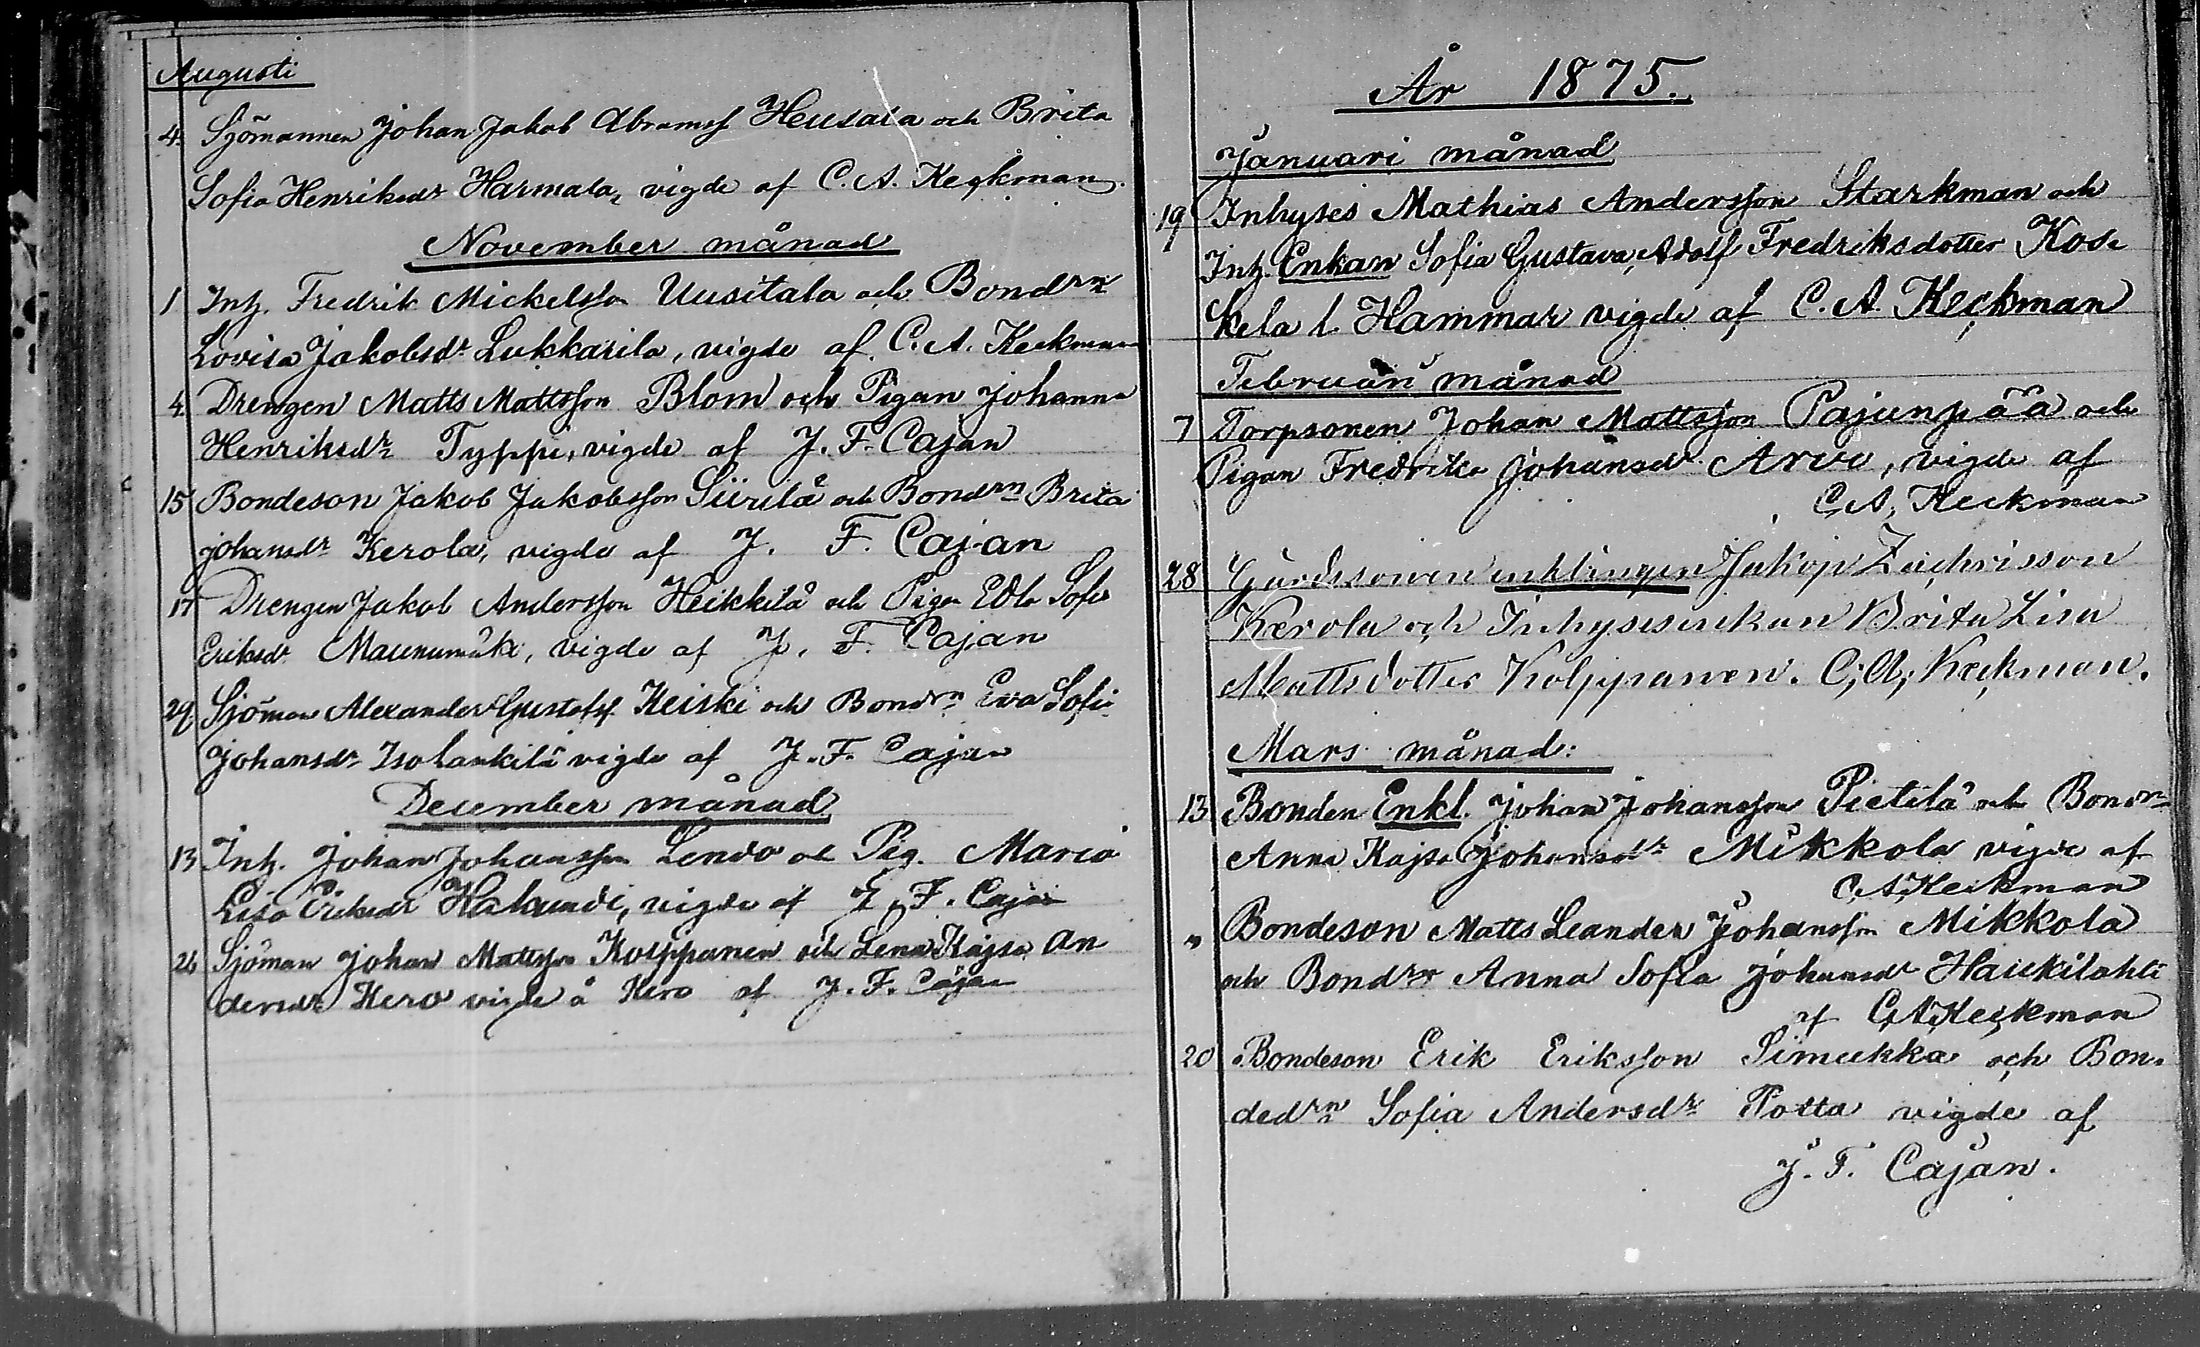 Augusti
4. Sjömannen Johan Jakob Abramss Heusala och Brita
Sofia Henriksdr Harmala, vigde af C. A. Keckman.
November månad
1 Inh. Fredrik Mickelsson Uusitalo och Bondrn
Lovisa Jakobsdr Lukkarila, vigde af C. A. Keckman
4. Drengen Matts Mattsson Blom och Pigan Johanna
Henriksdr Typpi, vigde af J. F. Cajan
15 Bondeson Jakob Jakobsson Siirilä och Bondrn Brita
Johansdr Kerola, vigde af J. F. Cajan
17 Drengen Jakob Andersson Heikkilä och Pigan Edla Sofia
Eriksdr Maunumäki, vigde af J. F. Cajan
29. Sjöman Alexander Gustafss. Keiski och Bondrn Eva Sofia
Johansdr Isolankila vigde af J. F. Cajan
December månad
13 Inh. Johan Johansson Lendo och Pig. Maria
Lisa Eriksdr vigde af J. F. Cajan
26 Sjöman Johan Mattsson Kolppanen och Lena Kajsa An
dersdr Kero vigde å Kero af J. F. Cajan
År 1875.
Januari månad
19 Inhyses Mathias Andersson Starkman och
Inh. Enkan Sofia Gustava, Adolf Fredriksdotter Kos-
kela l. Hammar vigde af C. A. Keckman
Februari månad
7 Torpsonen Johan Mattsson Pajunpää och
Pigan Fredrika Johansdr Arvo, vigde af
C. A. Keckman
28 Gårdssonen enklingen Jakop Zachrisson
Kerola och Inhysesenkan Brita Lisa
Mattsdotter Kolppanen. C. A. Keckman.
Mars månad:
13 Bonden Enkl. Johan Johansson Pietilä och Bondrn
Anna Kajsa Johansdr Mikkola vigde af
C. A. Keckman
" Bondeson Matts Leander Johansson Mikkola
och Bondrn Anna Sofia Johansdr Haukilahti
af C. A. Keckman
20 Bondeson Erik Eriksson Simukka och Bon-
dedrn Sofia Andersdr Potta vigde af
J. F. Cajan.